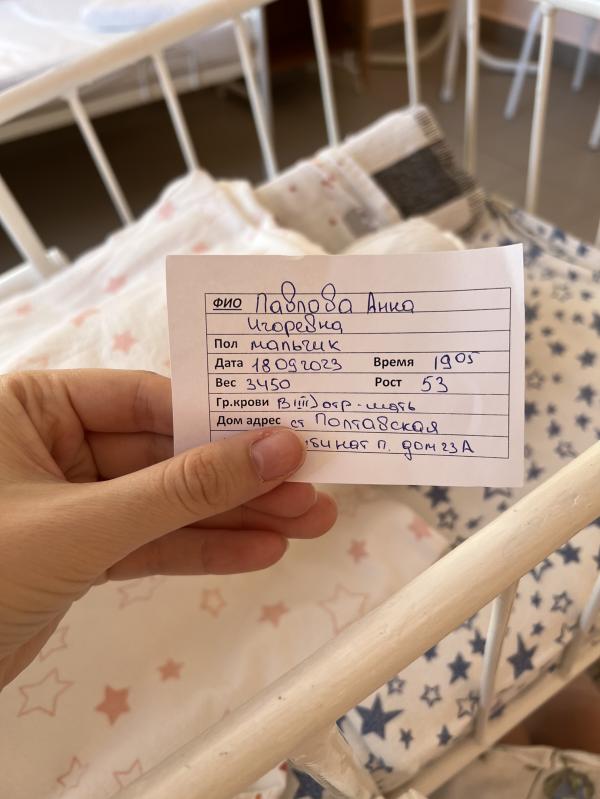 ФИО Павлова Анна
Игоревна
Пол мальчик
Дата 18092023 Время 1905
Вес 3450 Рост 53
Гр.крови В(III) отр - мать
Дом адрес ст Полтавская
п. дом 23А